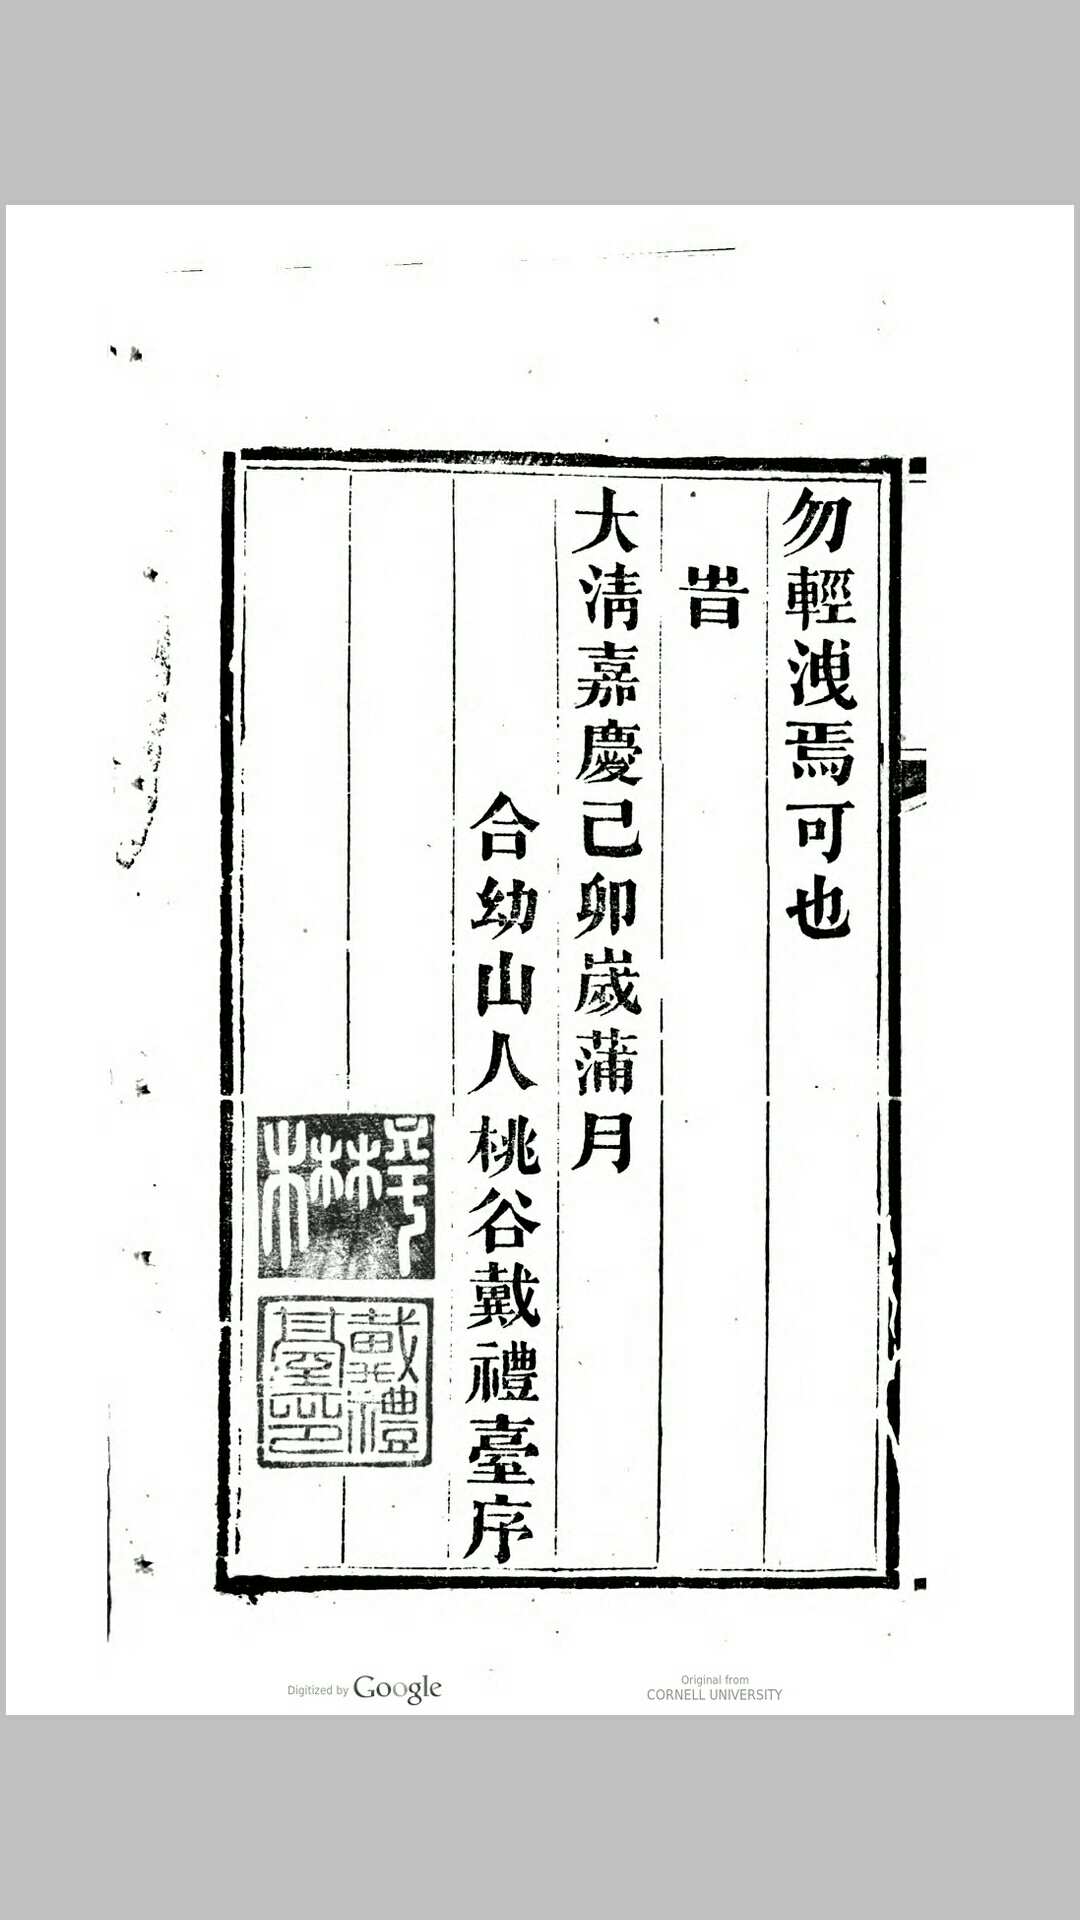 勿輕洩焉可也
旹
大淸嘉慶己卯歲蒲月
合幼山人桃谷戴禮臺序
戴禮臺印
Digitized by Google
Original from
CORNELL UNIVERSITY